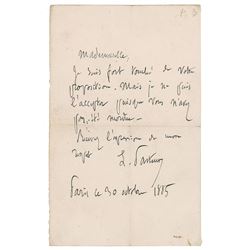 Mademoiselle,
Je suis fort touché de votre
proposition. Mais je ne puis
l'accepter puisque vous n'avez
pas été mordue.
Recevez l'expression de mon
L. Pasteur
Paris ce 30 octobre 1885